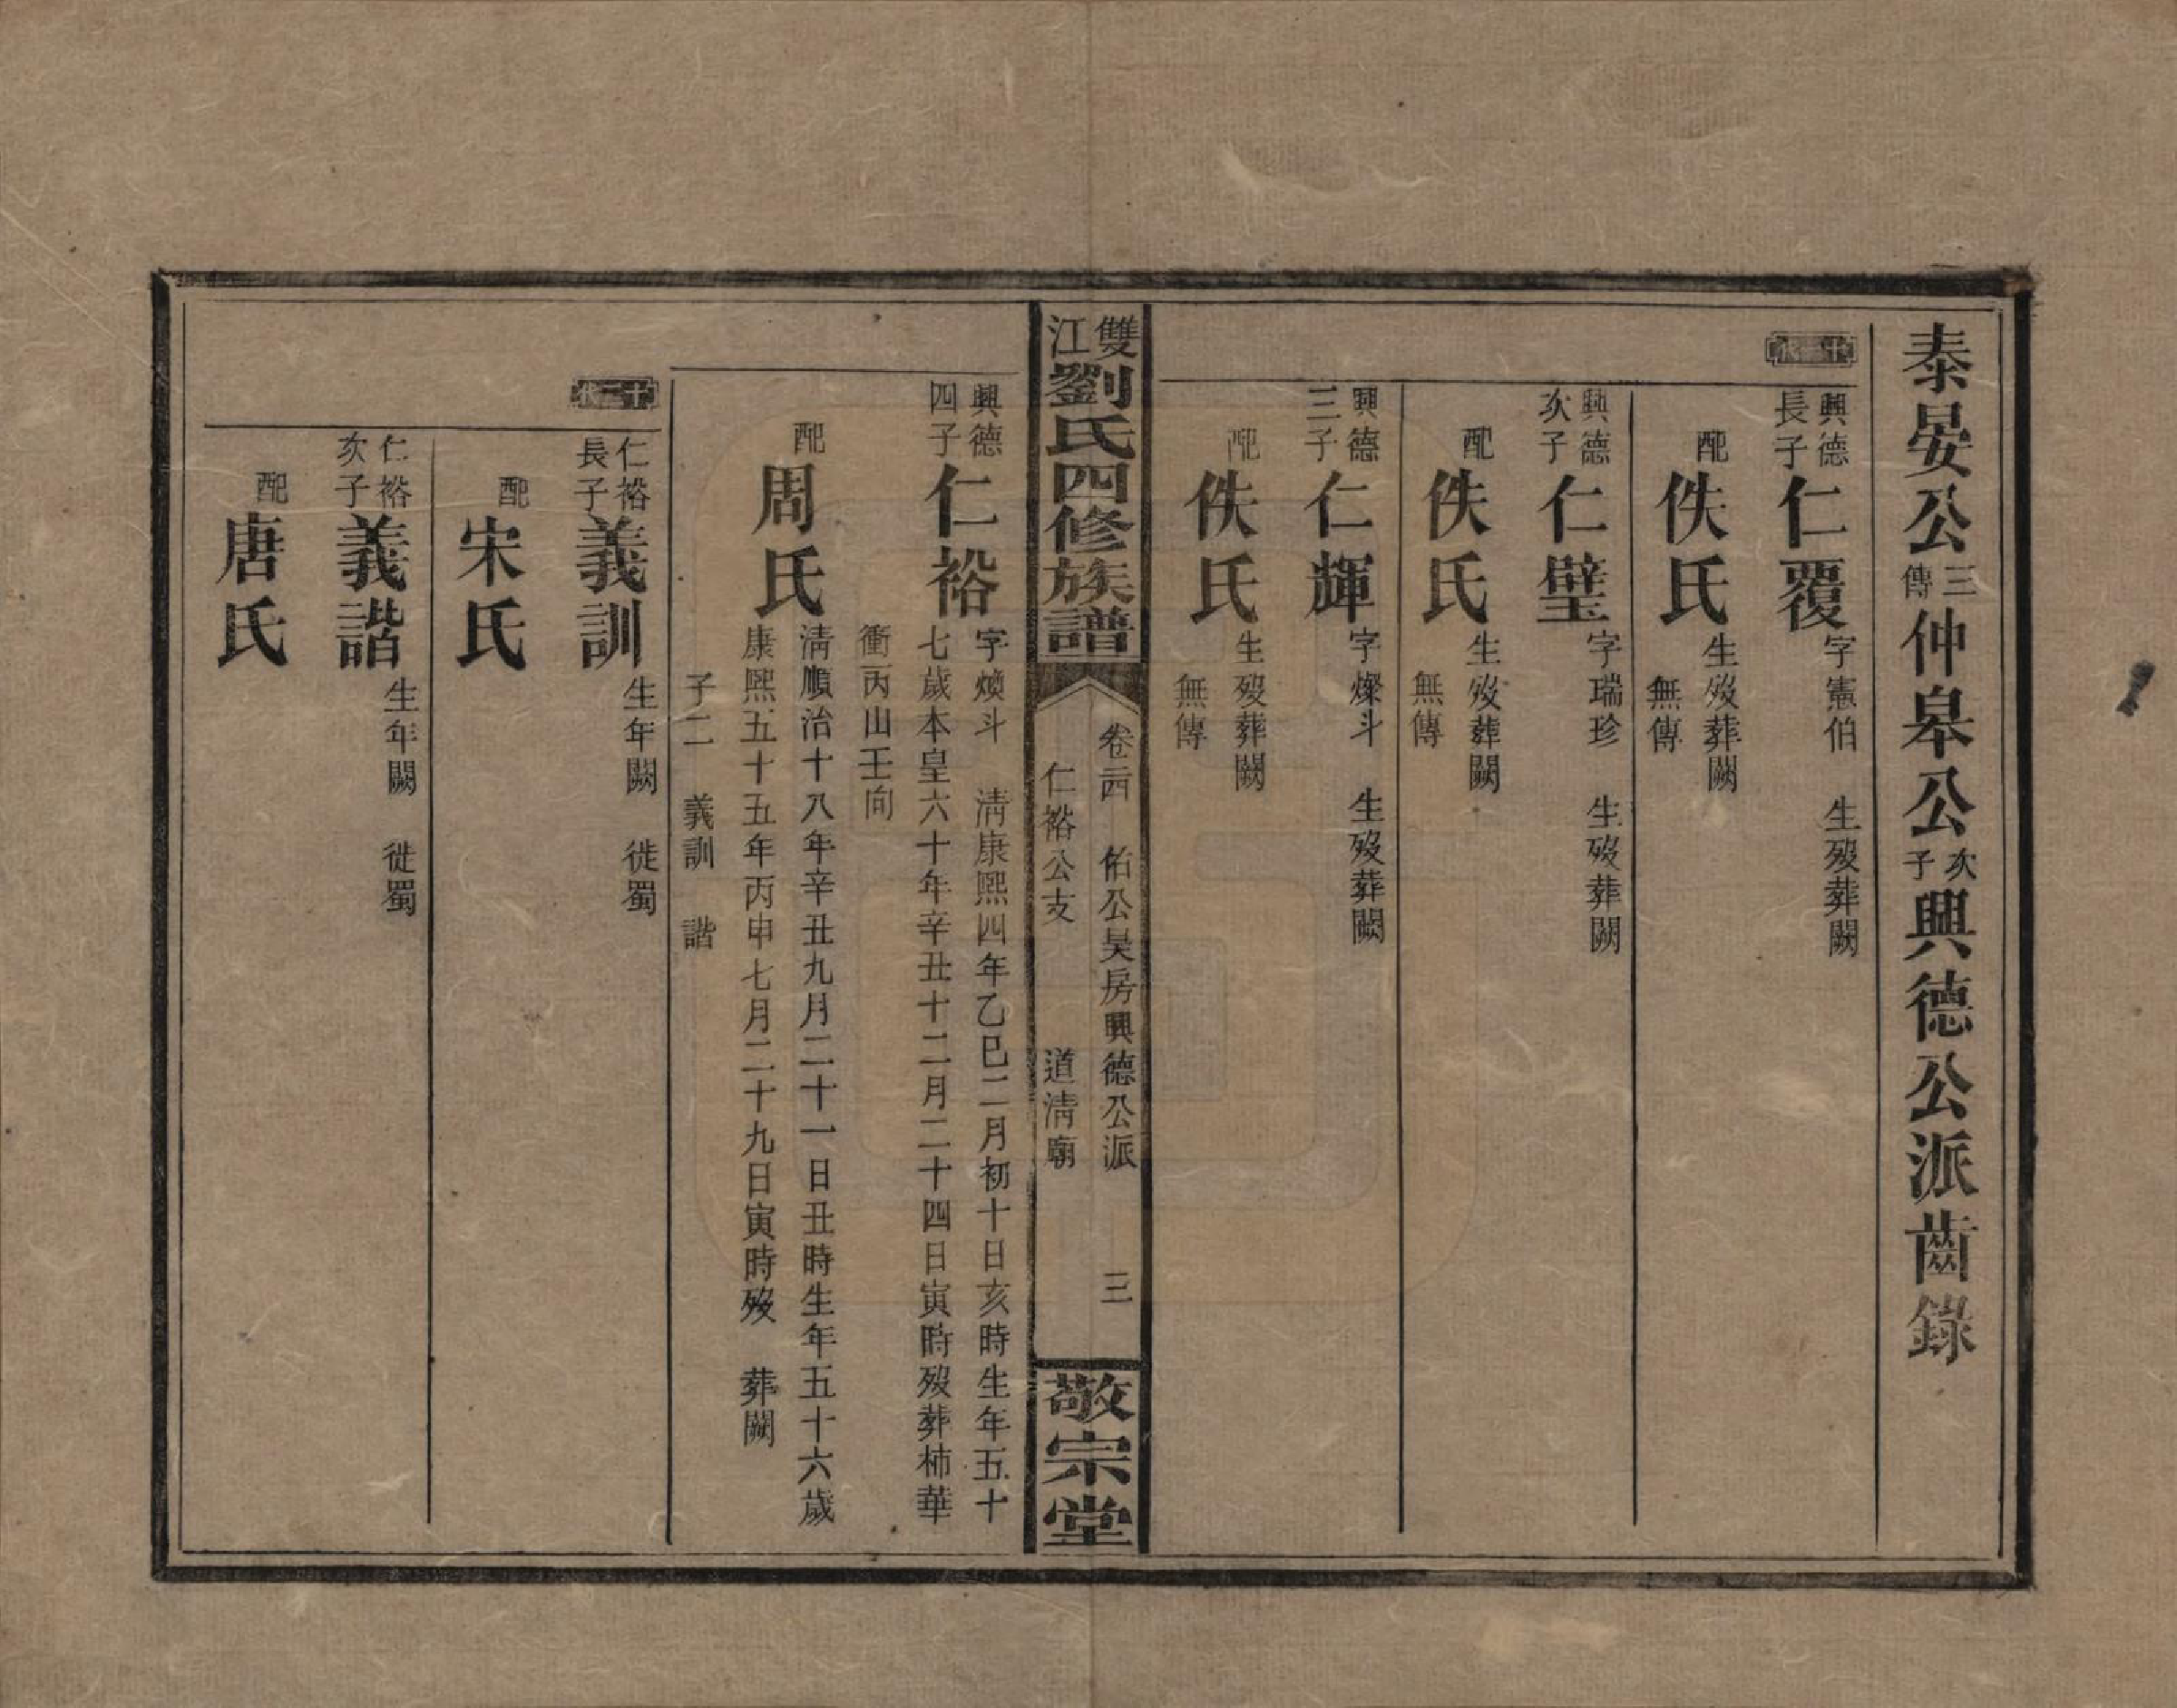 泰晏公三傳仲皋公次子興德公派齒錄
十一世
興德長子仁覆字憲伯 生歿葬闕
配佚氏生歿葬闕
無傳
興德次子仁璧字瑞珍 生歿葬闕
配佚氏生歿葬闕
無傳
興德三子仁輝字燦斗 生歿葬闕
配佚氏生歿葬闕
無傳
雙江劉氏四修族譜
卷二四 佑公昊房興德公派 三
仁裕公支 道清廟
敬宗堂
興德四子仁裕字煥斗 清康熙四年乙巳二月初十日亥時生年五十
七歲本皇六十年辛丑十二月二十四日寅時歿葬柿華
衝丙山壬向
配周氏清順治十八年辛丑九月二十一日丑時生年五十六歲
康熙五十五年丙申七月二十九日寅時歿 葬闕
子二 義訓 諧
十二世
仁裕長子義訓生年闕 徙蜀
配宋氏
仁裕次子義諧生年闕 徙蜀
配唐氏